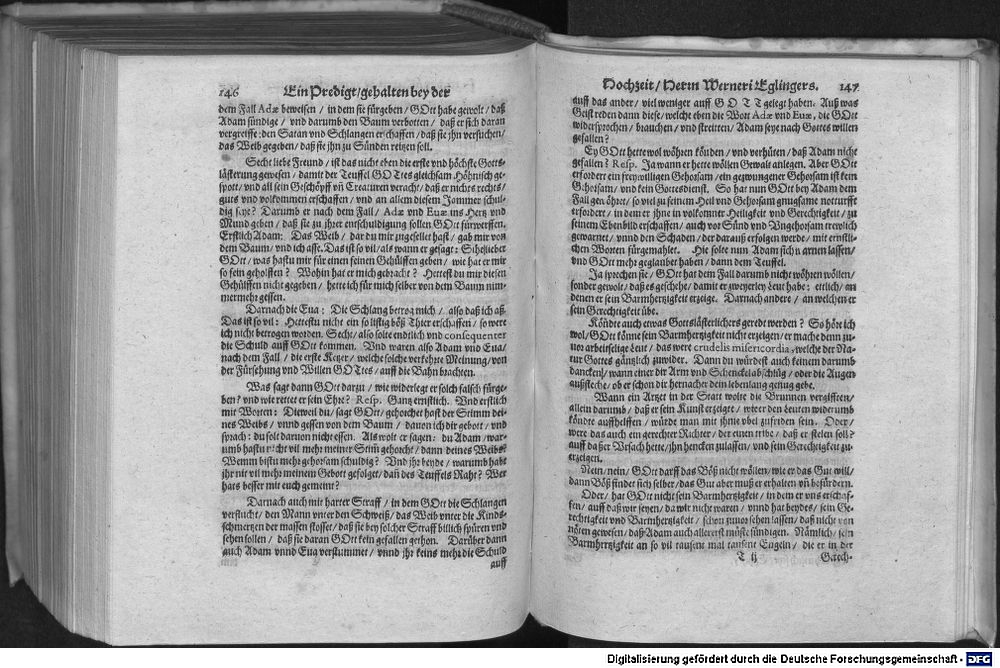 146 Ein Predigt/gehalten bey der
dem Fall Adæ beweisen / in dem sie fürgeben / GOtt habe gewolt / daß
Adam sündige / vnd darumb den Baum verbotten / daß er sich daran
vergreiffe: den Satan vnd Schlangen erschaffen / daß sie jhn versuchen /
das Weib gegeben / daß sie jhn zu Sünden reitzen soll.
Secht liebe Freund / ist das nicht eben die erste vnd höchste Gotts-
lästerung gewesen / damit der Teuffel GOttes gleichsam Höhnisch ge-
spott / vnd all sein Geschöpff vñ Creaturen veracht / daß er nichts rechts /
guts vnd volkommen erschaffen / vnd an allem diesem Jammer schul-
dig seye? Darumb er nach dem Fall / Adæ vnd Euæ ins Hertz vnd
Mund geben / daß sie zu jhrer entschuldigung sollen GOtt fürwerffen.
Erstlich Adam: Das Weib / dar du mir zugesellet hast / gab mir von
dem Baum / vnd ich asse. Das ist so vil / als wann er gesagt: Sihe lieber
GOtt / was hastu mir für einen feinen Gehülffen geben / wie hat er mir
so fein geholffen? Wohin hat er mich gebracht? Hettest du mir diesen
Gehülffen nicht gegeben / hette ich für mich selber von dem Baum nim-
mermehr gessen.
Darnach die Eua: Die Schlang betrog mich / also daß ich aß.
Das ist so vil: Hettestu nicht ein so listig böß Thier erschaffen / so were
ich nicht betrogen worden. Secht / also solte endtlich vnd consequenter
die Schuld auff GOtt kommen. Vnd waren also Adam vnd Eua /
nach dem Fall / die erste Ketzer / welche solche verkehrte Meinung / von
der Fürsehung vnd Willen GOttes / auff die Bahn brachten.
Was sagt dann GOtt darzu / wie widerlegt er solch falsch fürge-
ben? vnd wie rettet er sein Ehre? Resp. Gantz ernstlich. Vnd erstlich
mit Worten: Dieweil du / sagt GOtt / gehorchet hast der Stimm dei-
nes Weibs / vnnd gessen von dem Baum / dauon ich dir gebott / vnd
sprach: du solt daruon nicht essen. Als wolt er sagen: du Adam / war-
umb hastu nicht vil mehr meiner Stim gehorcht / dann deines Weibs?
Wemm bistu mehr gehorsam schuldig? Vnd jhr beyde / warumb habt
jhr nit vil mehr meinem Gebott gefolget / dañ des Teuffels Raht? Wer
hats besser mit euch gemeint?
Darnach auch mit harter Straff / in dem GOtt die Schlangen
verflucht / den Mann vnter den Schweiß / das Weib vnter die Kinds-
schmertzen der massen stosset / daß sie bey solcher Straff billich spüren vnd
sehen sollen / daß sie daran GOtt kein gefallen gethon. Darüber dann
auch Adam vnnd Eua verstummet / vnnd jhr keins mehr die Schuld
auff
Hochzeit / Herrn Werneri Eglingers. 147
auff das ander / viel weniger auff GOTT gelegt haben. Auß was
Geist reden dann diese / welche eben die Wort Adæ vnd Euæ, die GOtt
widersprochen / brauchen / vnd streitten / Adam seye nach Gottes willen
gefallen?
Ey GOtt hette wol wöhren könden / vnd verhüten / daß Adam nicht
gefallen? Resp. Ja wann er hette wöllen Gewalt anlegen. Aber GOtt
erfordert ein freywilligen Gehorsam / ein gezwungener Gehorsam ist kein
Gehorsam / vnd kein Gottesdienst. So hat nun GOtt bey Adam dem
Fall gewöhret / so viel zu seinem Heil vnd Gehorsam gnugsame notturfft
erfordert / in dem er jhne in volkomner Heiligkeit vnd Gerechtigkeit / zu
seinem Ebenbild erschaffen / auch vor Sünd vnd Vngehorsam trewlich
gewarnet / vnnd den Schaden / der darauß erfolgen werde / mit ernstli-
chen Worten fürgemahlet. Hie solte nun Adam sich warnen lassen /
vnd GOtt mehr geglaubet haben / dann dem Teuffel.
Ja sprechen sie / GOtt hat dem Fall darumb nicht wöhren wöllen /
sonder gewolt / daß es geschehe / damit er zweyerley Leut habe: etlich / an
denen er sein Barmhertzigkeit erzeige. Darnach andere / an welchen er
sein Gerechtigkeit übe.
Köndte auch etwas Gottslästerlichers geredt werden? So höre ich
wol / GOtt könne sein Barmhertzigkeit nicht erzeigen / er mache denn zu-
uor arbeitselige Leut / das were crudelis misericordia, welche der Na-
tur Gottes gäntzlich zuwider. Dann du würdest auch keinem darumb
dancken / wann einer dir Arm vnd Schenckel abschlüg / oder die Augen
außsteche / ob er schon dir hernacher dein lebenlang genug gebe.
Wann ein Artzet in der Statt wolte die Brunnen vergifften /
allein darumb / daß er sein Kunst erzeigte / wie er den Leuten widerumb
köndte auffhelffen / würde man mit jhme vbel zufriden sein. Oder /
were das auch ein gerechter Richter / der einen tribe / daß er stelen soll?
auff daß er Vrsach hette / jhn hencken zulassen / vnd sein Gerechtigkeit zu-
erzeigen.
Nein / nein / GOtt darff das Böß nicht wöllen / wie er das Gut will /
dann Böß findet sich selber / das Gut aber muß er erhalten vñ befürdern.
Oder / hat GOtt nicht sein Barmhertzigkeit / in dem er vns erschaf-
fen / auff daß wir seyen / da wir nicht waren / vnnd hat beydes / sein Ge-
rechtigkeit vnd Barmhertzigkeit / schon zuuor sehen lassen / daß nicht von
nöten gewesen / daß Adam auch allererst müste sündigen. Nämlich / sein
Barmhertzigkeit an so vil tausent mal tausent Engeln / die er in der
T ij Gerech-
Digitalisierung gefördert durch die Deutsche Forschungsgemeinschaft - DFG